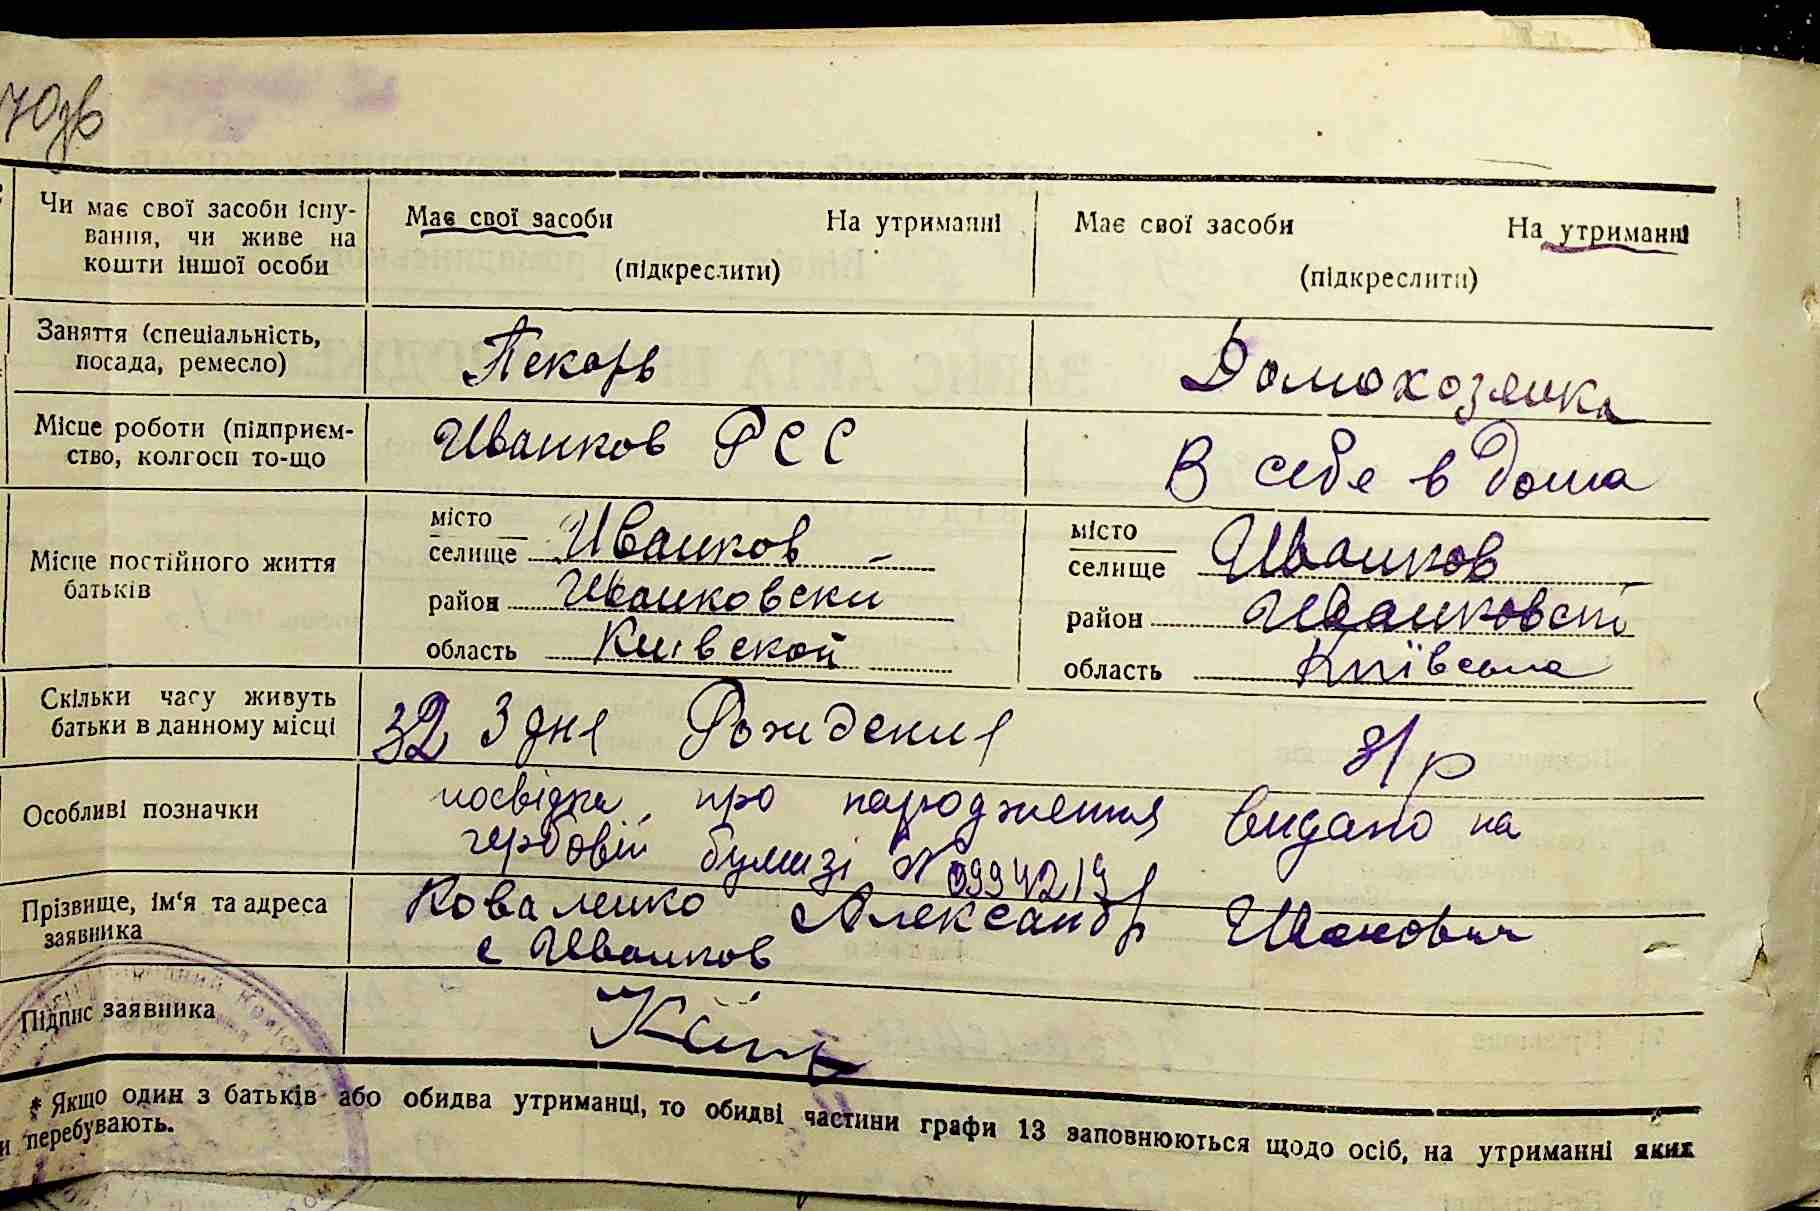 70зв
Чи має свої засоби існу-
вання, чи живе на
кошти іншої особи
Має свої засоби На утриманні
(підкреслити)
Має свої засоби На утриманні
(підкреслити)
Заняття (спеціальність,
посада, ремесло)
Пекарь
Домохозяика
Місце роботи (підприєм-
ство, колгосп то-що
Иванков РСС
В себе в дома
Місце постійного життя
батьків
місто
селище Иванков
район Иванковски
область Київской
місто
селище Иванков
район Иванковскі
область Київська
Скільки часу живуть
батьки в данному місці
32 З дня Рождения
31 р
Особливі позначки
посвідка про народження видано на
гербовій бумазі № 0994219
Прізвище, ім'я та адреса
заявника
Коваленко Александр Иванович
с Иванков
Підпис заявника
* Якщо один з батьків або обидва утриманці, то обидві частини графи 13 заповнюються щодо осіб, на утриманні яких
и перебувають.